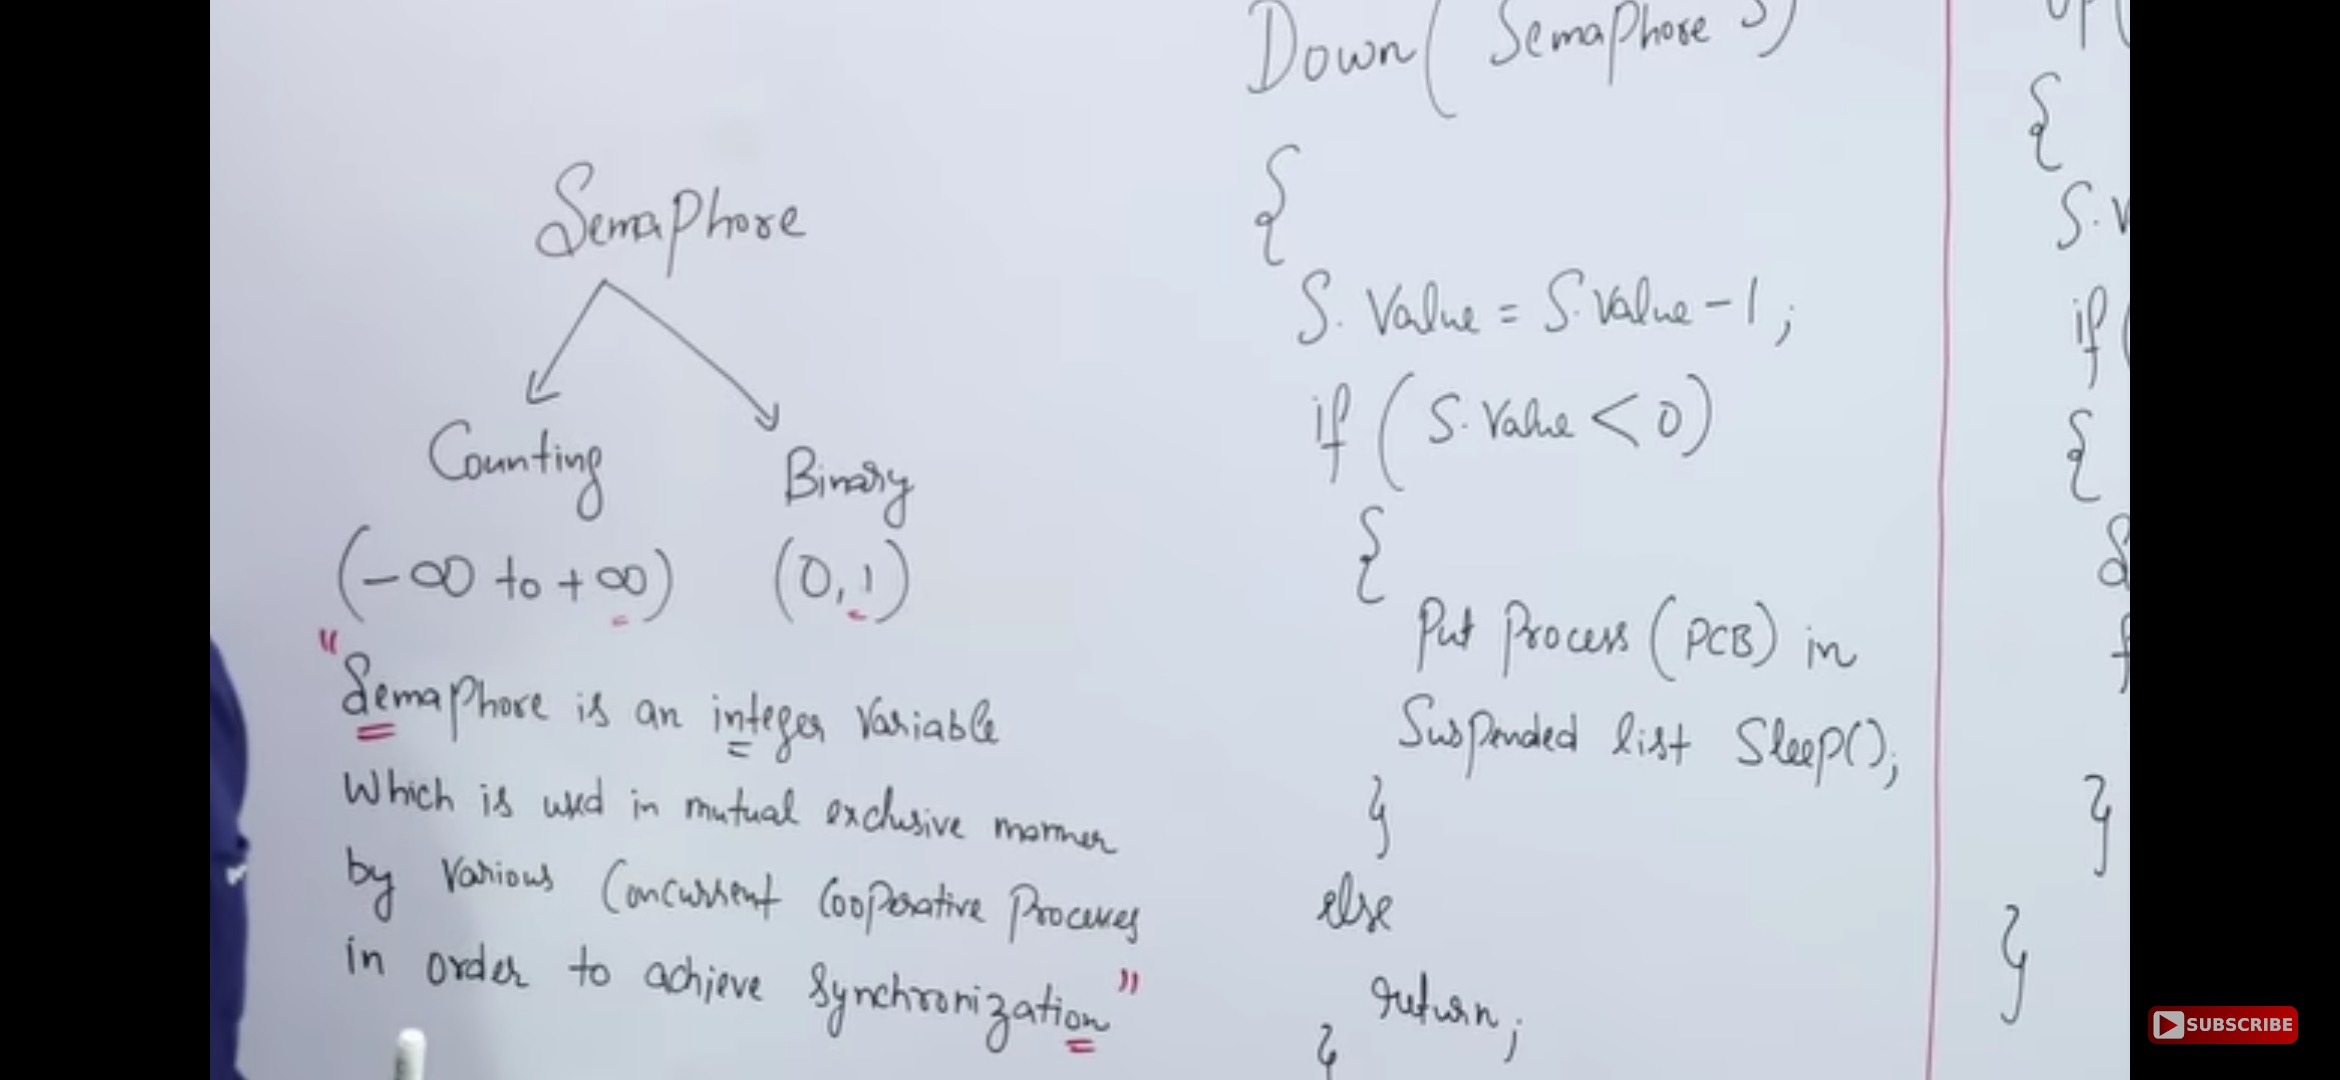 Semaphore
Counting Binary
(-∞ to +∞) (0,1)
"Semaphore is an integer Variable
Which is used in mutual exclusive manner
by Various Concurrent Cooperative Processes
in order to achieve Synchronization"
Down( Semaphore S)
{
S. Value = S. Value - 1 ;
if ( S. Value < 0)
{
Put Process (PCB) in
Suspended list Sleep();
}
else
return ;
}
{
S.
if (
{
}
}
SUBSCRIBE